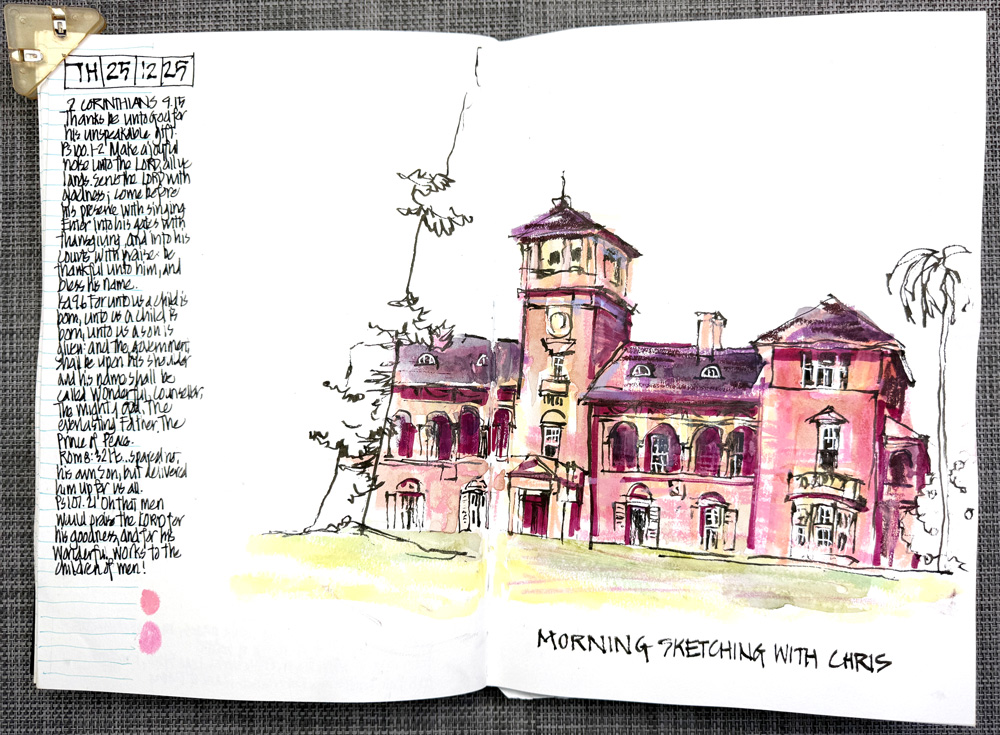 TH 25 12 25
2 CORINTHIANS 9.15
Thanks be unto God for
his unspeakable gift.
Ps 100.1-2 Make a joyful
noise unto the LORD, all ye
lands. Serve the LORD with
gladness; come before
his presence with singing
Enter into his gates with
thanksgiving, and into his
courts with praise: be
thankful unto him, and
bless his name.
Isa 9.6 For unto us a child is
born, unto us a child is
born, unto us a son is
given: and the government
shall be upon his shoulder
and his name shall be
called Wonderful, Counseller,
The mighty God, The
everlasting Father, The
Prince of Peace.
Rom 8:32 He.. spared not
his own son, but delivered
him up for us all.
Ps 107.21 Oh that men
would praise the LORD for
his goodness, and for his
wonderful works to the
children of men!
MORNING SKETCHING WITH CHRIS